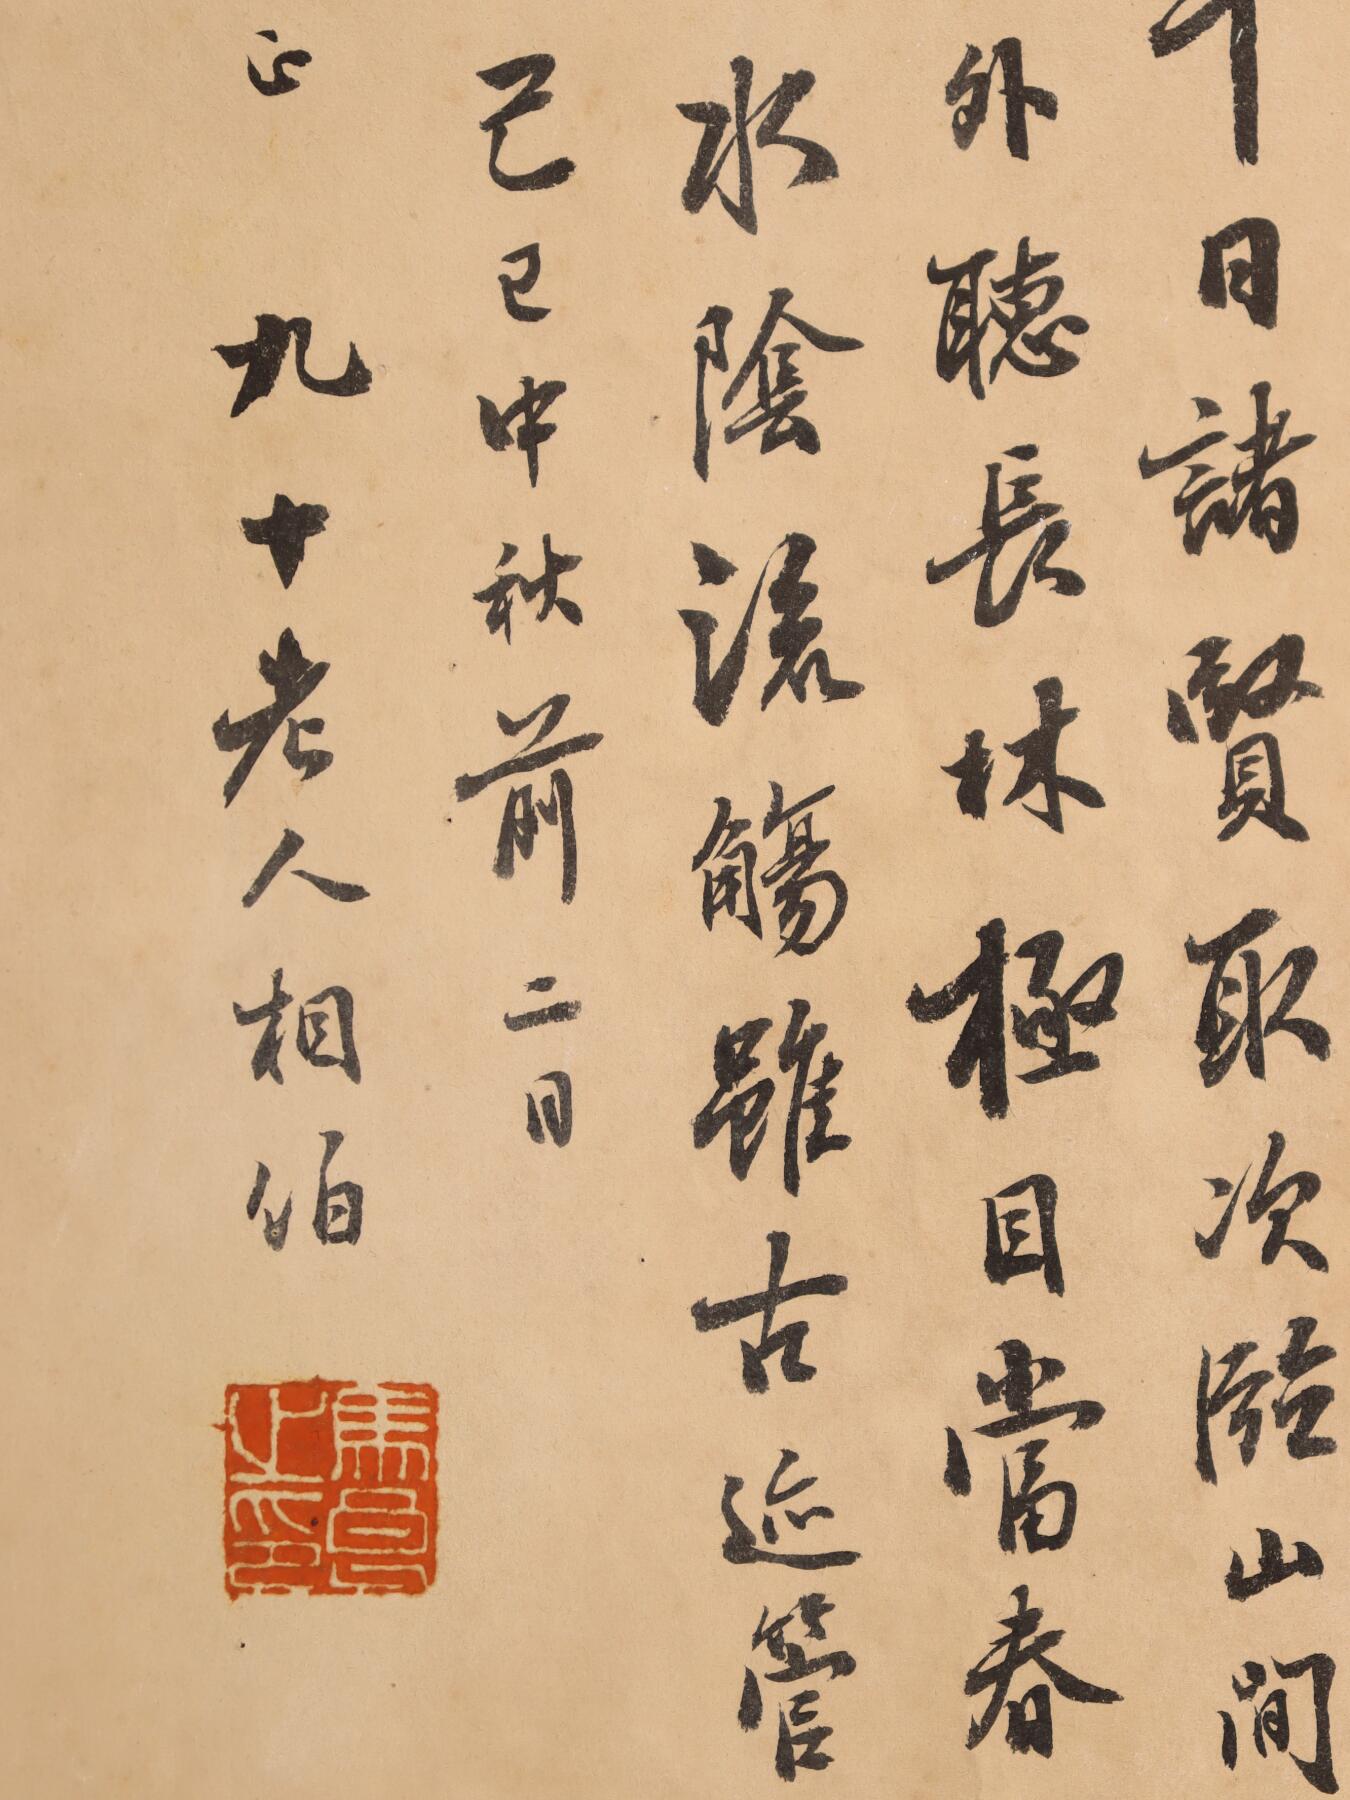 日諸賢取次臨山間
外聽長林極目當春
水陰流觴雖古迹管
己巳中秋前二日
正
九十老人相伯